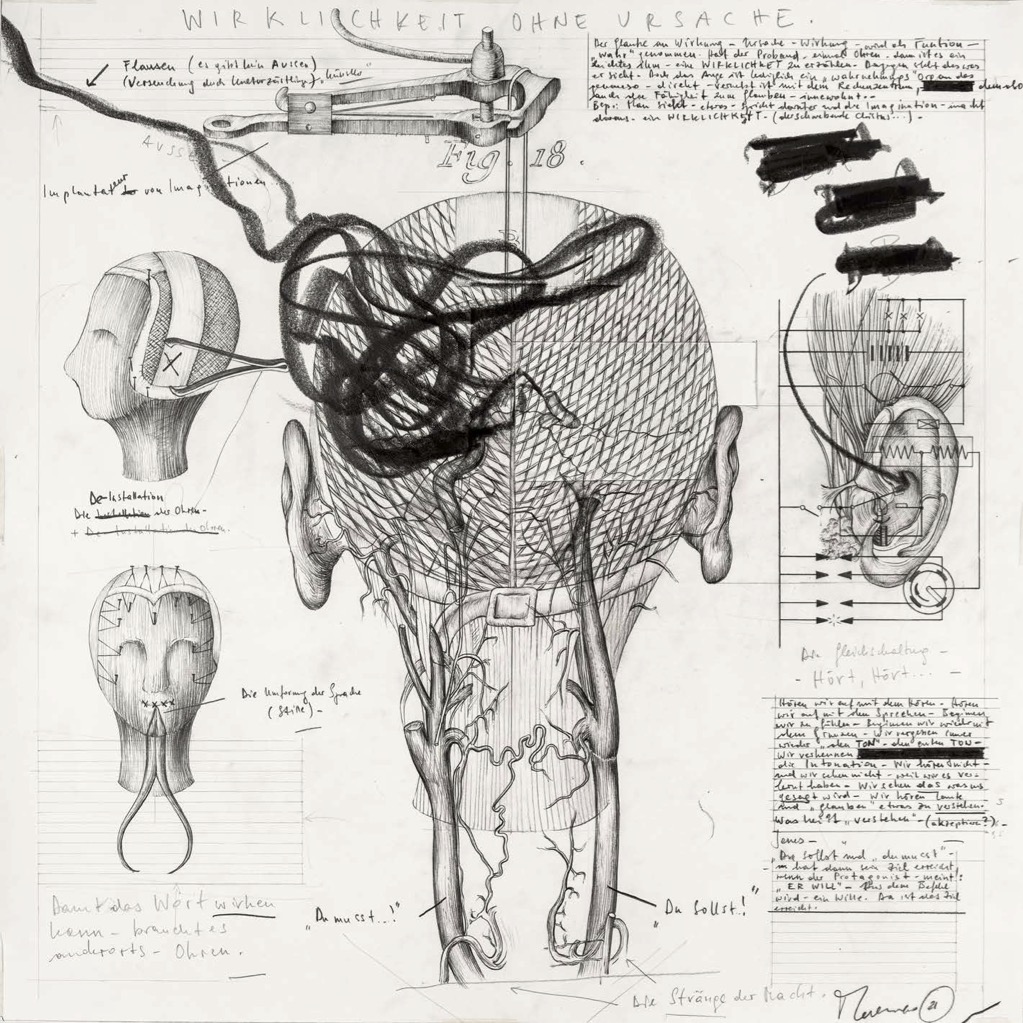 WIRKLICHKEIT OHNE URSACHE.
Flausen (es gibt kein Aussen)
Fig. 18.
AUSSE
Implantat von Imaginationen
Der Glaube an Wirkung – Ursache – Wirkung – wird als Funktion –
"wahr" genommen. Hat der Proband – einmal Ohren – dann ist es ein
leichtes ihm – ein WIRKLICHKEIT zu erzählen. Dagegen steht das was
er sieht. Doch das Auge ist lediglich ein "wahrnehmungs" Organ das
genauso – direkt – vernetzt ist mit dem Redenzentrum,
der Fähigkeit zum glauben – innewohnt –
Bspr: Man sieht – etwas – spricht darüber und die Imagination – macht
daraus – ein WIRKLICHKEIT. (der schwebende Christus...) –
De-Installation
Die Installation des Ohres –
+ Die Installation des Ohres.
Die Umformung der Sprache
(Stille) –
Die Gleichschaltung –
– Hört, Hört... –
Hören wir auf mit dem Hören – Hören
wir auf mit dem Sprechen – Beginnen
wir zu fühlen – Beginnen wir wieder mit
dem Sinnen – Wir vergehen immer
wieder "den TON" – den guten TON –
Wir verkennen
die Intonation – Wir hören nicht –
und wir sehen nicht – weil wir es ver-
lernt haben – Wir sehen das was uns
gesagt wird – Wir hören Laute
und "glauben" etwas zu verstehen.
Was heißt "verstehen" – (akzeptieren?) –
Jenes –
"Du sollst und "du musst" –
hat dann sein Ziel erreicht,
wenn der Protagonist – meint:
"ER WILL" – Aus dem Befehl
wird – ein Wille. Da ist das Ziel
erreicht.
Damit das Wort wirken
kann – braucht es
anderorts – Ohren.
"Du musst..!"
"Du sollst!"
Die Stränge der Macht.
21